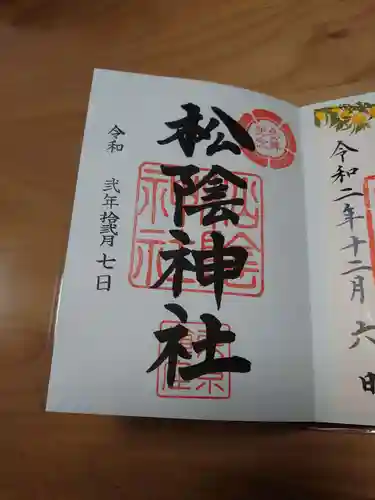 松陰神社
令和 弐年 拾弐月 七日
松陰
神社
令和二年十二月六日